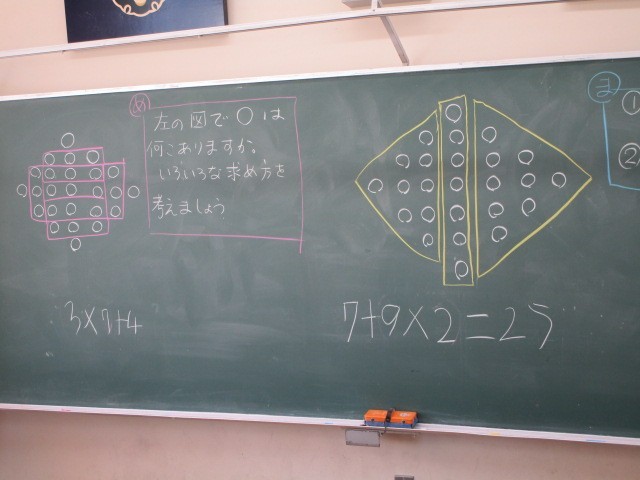 め
左の図で〇は
何こありますか。
いろいろな求め方を
考えましょう
3×7+4
7+9×2=25
ま
①
②